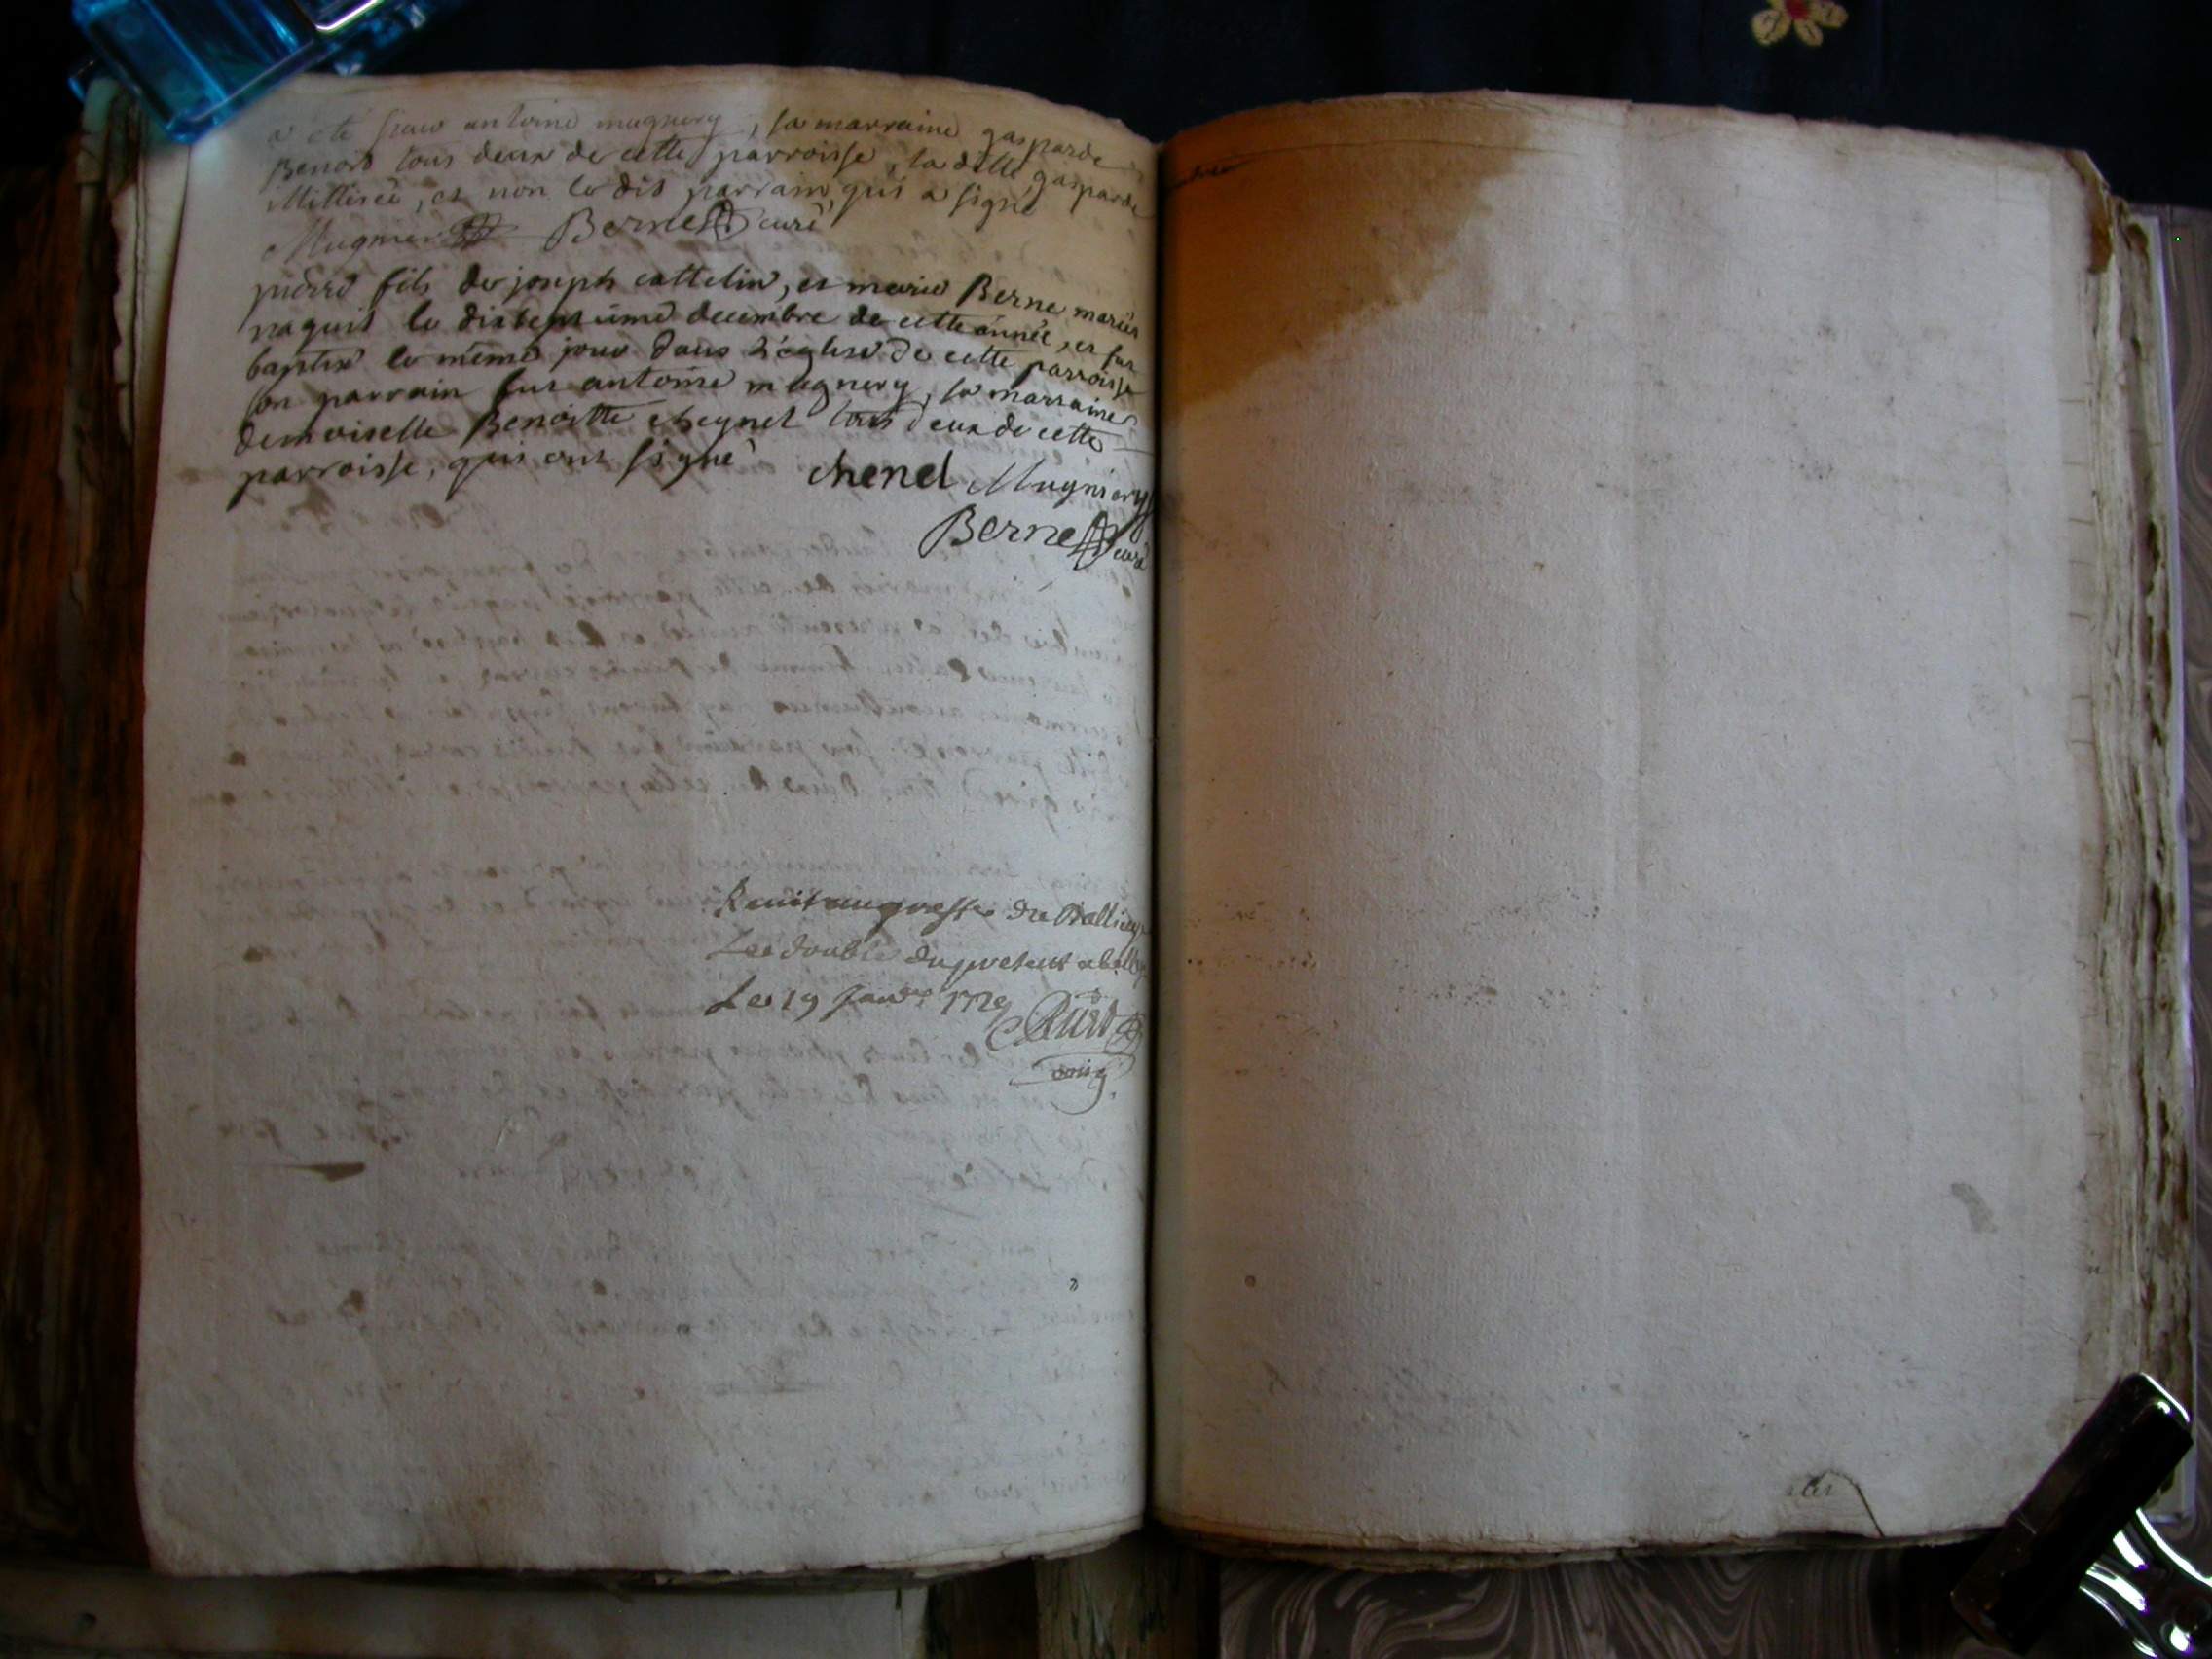 a été sieur antoine mugnery, sa marraine gasparde
Benoit tous deux de cette parroisse, la ditte gasparde
illitirée, et non le dit parrain qui a signé
Mugniery Berne curé
pierre fils de joseph cattelin, et marie Berne mariés
naquit le dixseptieme decembre de cette année, et fut
baptisé le même jour dans l'église de cette parroisse
son parrain fut antoine mugnery, sa marraine
demoiselle Benoitte cheynel tous deux de cette
parroisse, qui ont signé chenel Mugniery
Berne curé
Remis au greffe du Balliage
Le double du present a belley
Le 19 Janv.er 1729